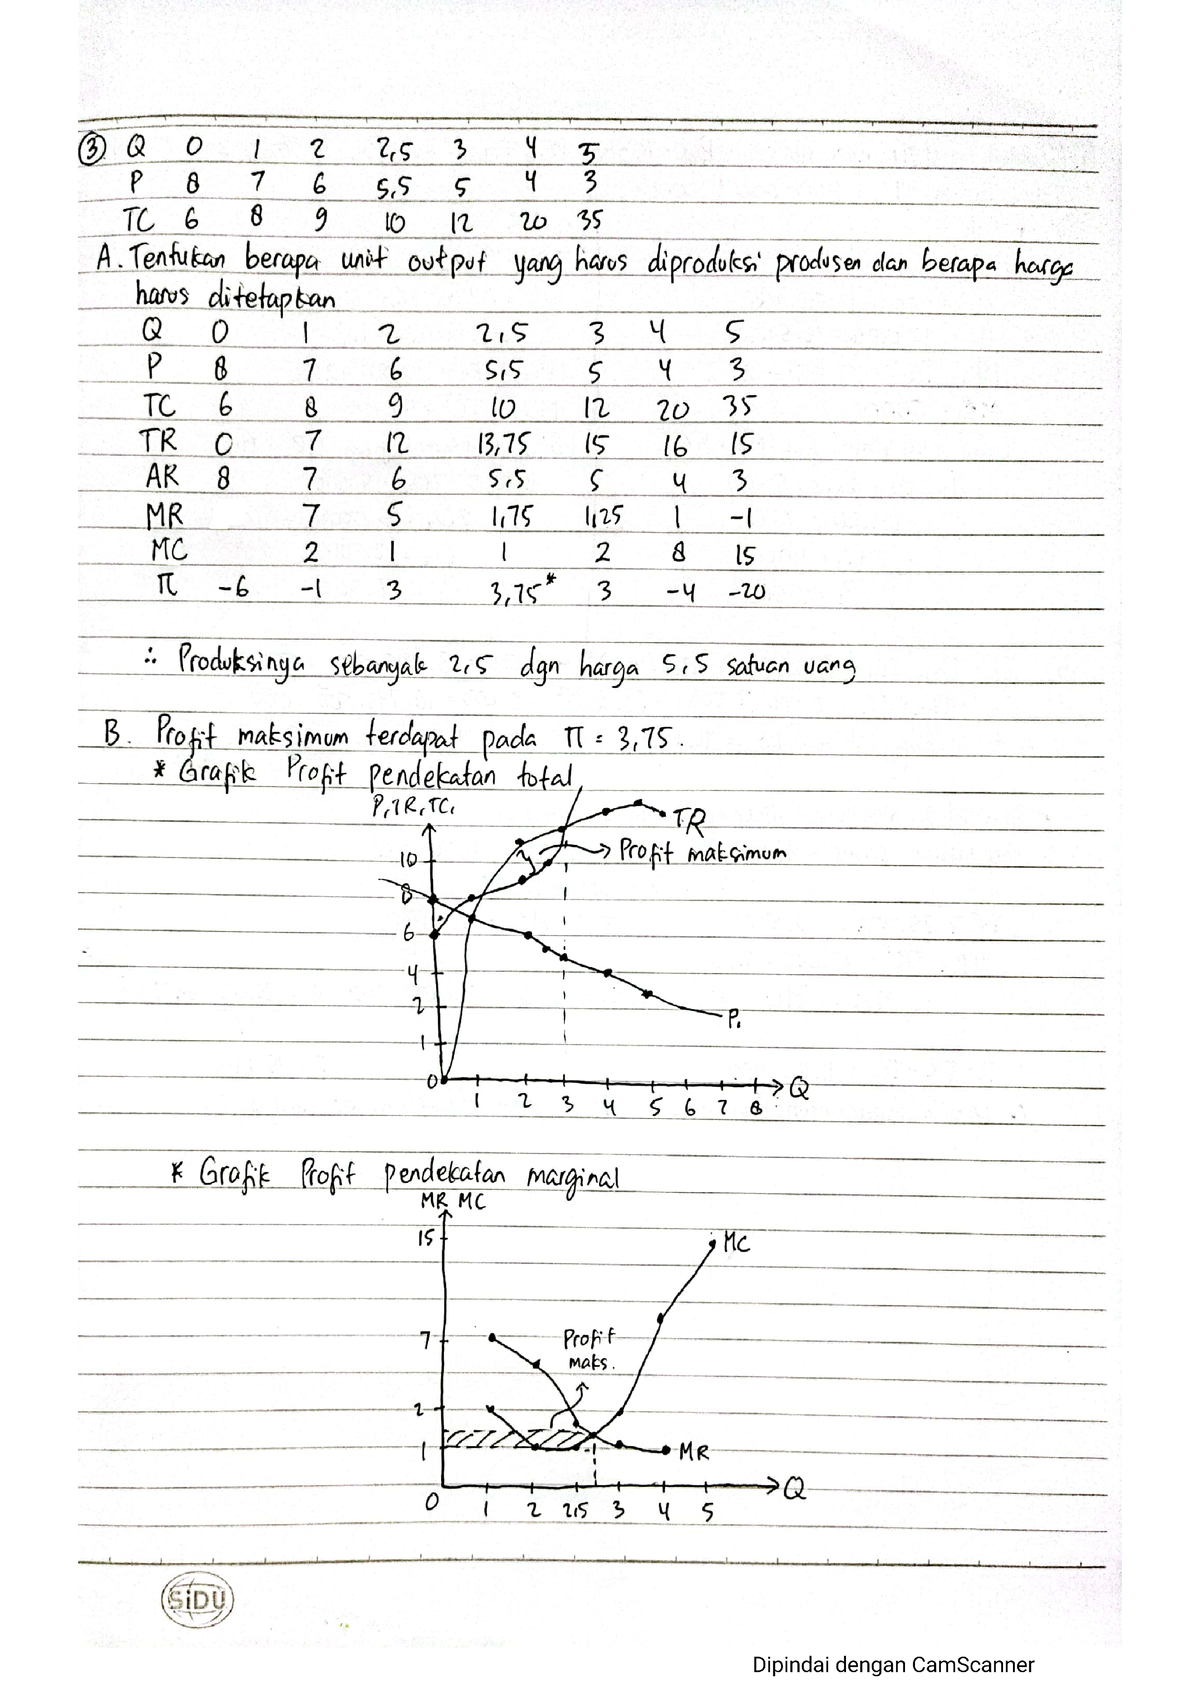 ③ Q 0 1 2 2,5 3 4 5
P 8 7 6 5,5 5 4 3
TC 6 8 9 10 12 20 35
A. Tentukan berapa unit output yang harus diproduksi produsen dan berapa harga
harus ditetapkan
Q 0 1 2 2,5 3 4 5
P 8 7 6 5,5 5 4 3
TC 6 8 9 10 12 20 35
TR 0 7 12 13,75 15 16 15
AR 8 7 6 5,5 5 4 3
MR 7 5 1,75 1,25 1 -1
MC 2 1 1 2 8 15
π -6 -1 3 3,75* 3 -4 -20
∴ Produksinya sebanyak 2,5 dgn harga 5,5 satuan uang
B. Profit maksimum terdapat pada π = 3,75.
* Grafik Profit pendekatan total
P, TR, TC,
TR
Profit maksimum
10
8
6
4
2
P.
1
0
Q
1 2 3 4 5 6 7 8
* Grafik Profit pendekatan marginal
MR MC
15
MC
7
Profit
maks.
2
1
MR
Q
0 1 2 2,5 3 4 5
SiDU
Dipindai dengan CamScanner